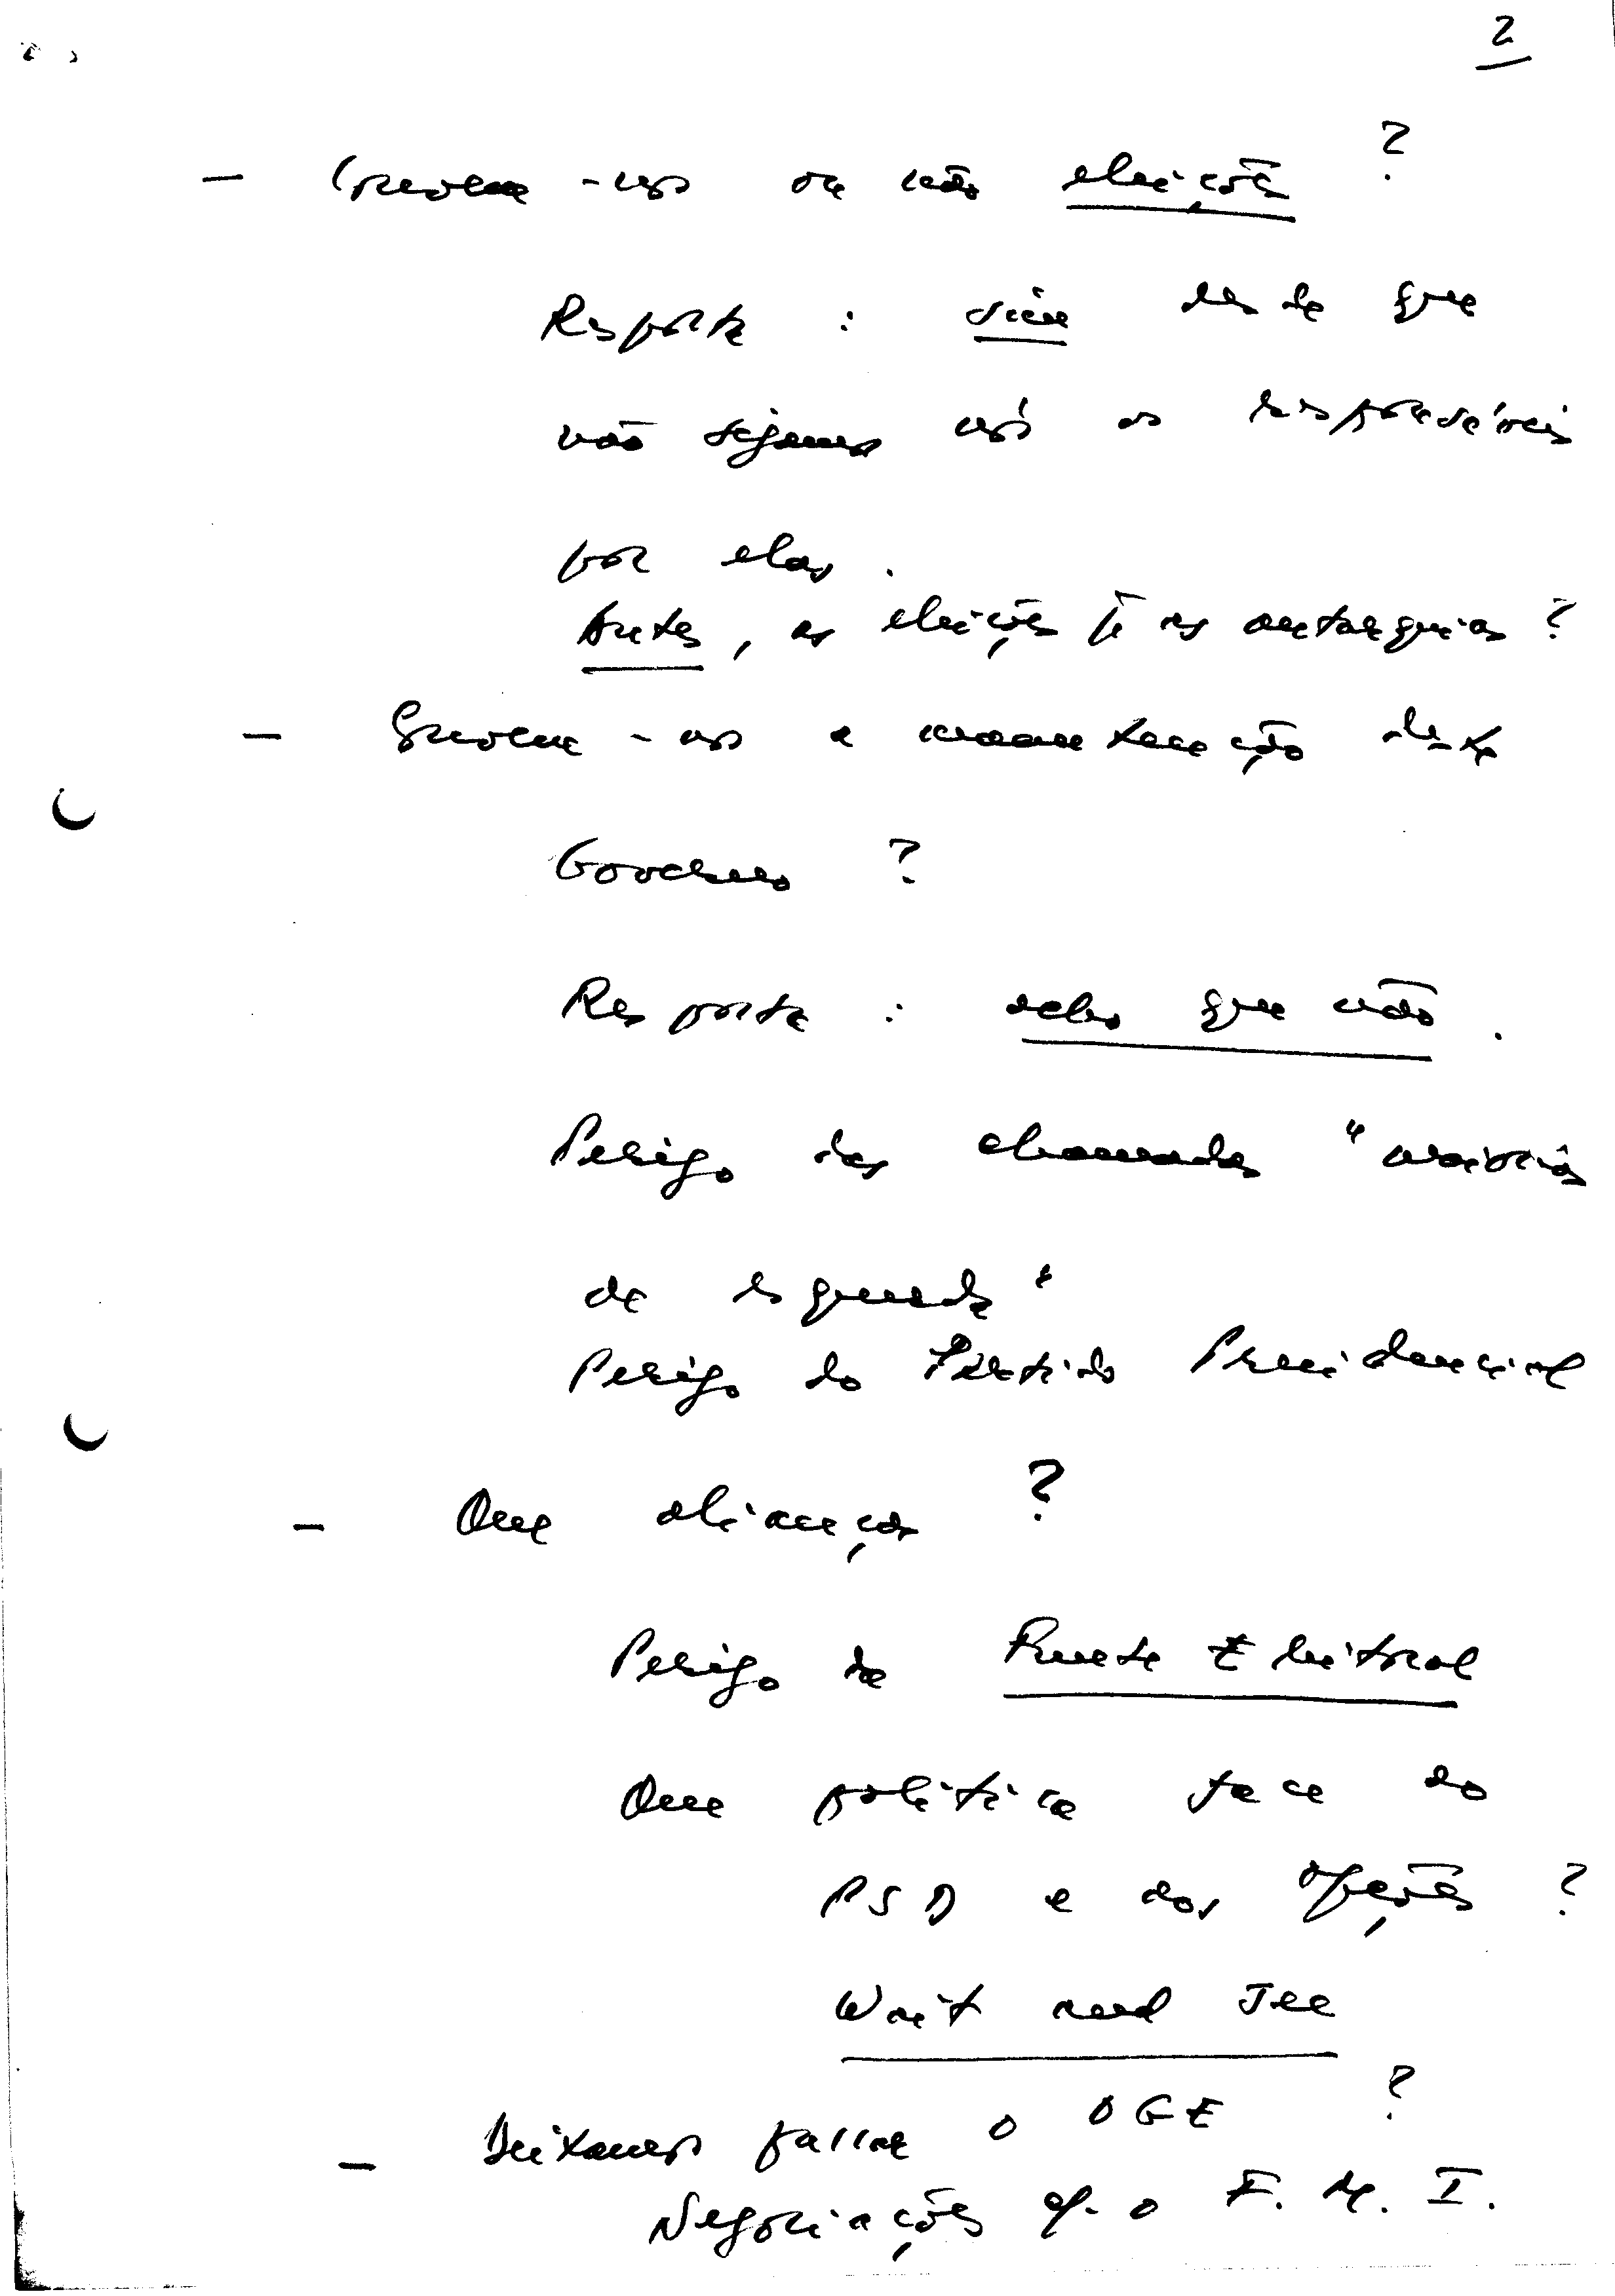 2
- Convem-nos ou não eleições ?
Resposta : sim desde que
não sejamos nós os responsáveis
por elas.
Antes, as eleições p. as autarquias ?
- Convem-nos a manutenção deste
Governo ?
Resposta : acho que não.
Perigo das chamadas "maiorias
de esquerda"
Perigo do Partido Presidencial
- Que alianças ?
Perigo da Frente Eleitoral
Que política face ao
PSD e aos opções ?
Wait and See
- Deixamos passar o OGE ?
Negociações c/ o F.M.I.